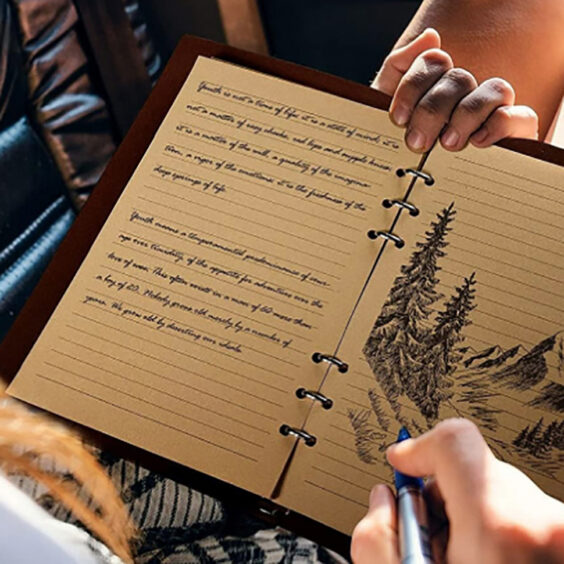 Youth is not a time of life; it is a state of mind; it is
not a matter of rosy cheeks, red lips and supple knees
it is a matter of the will, a quality of the imagina-
tion, a vigor of the emotions; it is the freshness of the
deep springs of life.
Youth means a temperamental predominance of cour-
age over timidity, of the appetite for adventure over the
love of ease. This often exists in a man of 60 more than
a boy of 20. Nobody grows old merely by a number of
years. We grow old by deserting our ideals.